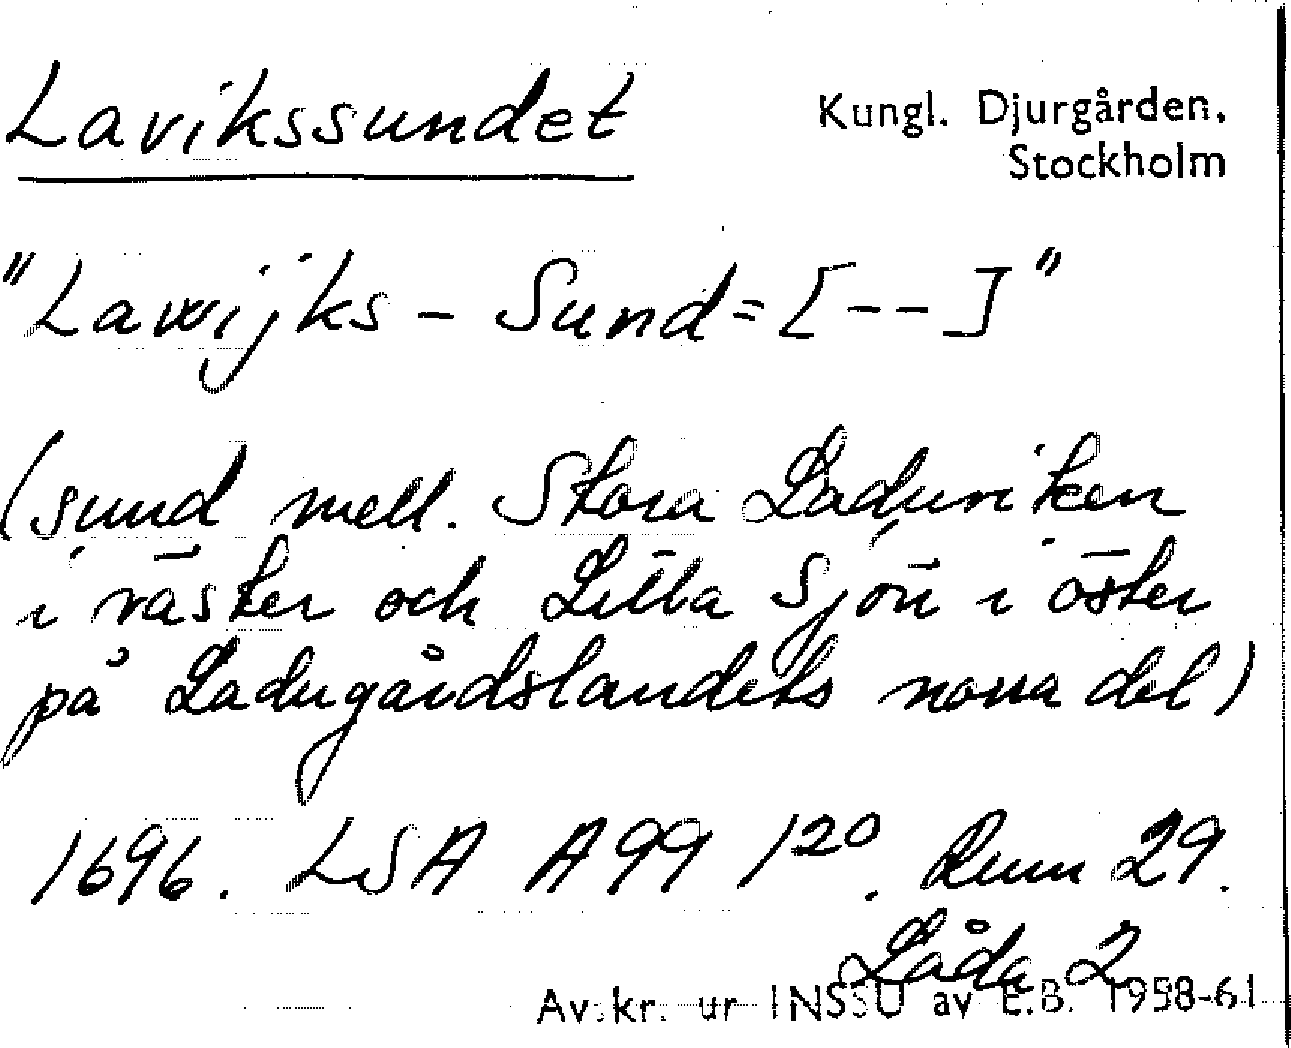 Lavikssundet
Kungl. Djurgården.
Stockholm
"Lawijks - Sund= [--]"
(sund mell. Stora Laduviken
i väster och Lilla Sjön i öster
på Ladugårdslandets norra del)
1696. LSA A99 1²⁰. Rum 29.
Låda 2
Av.kr. ur INSSU av E.B. 1958-61